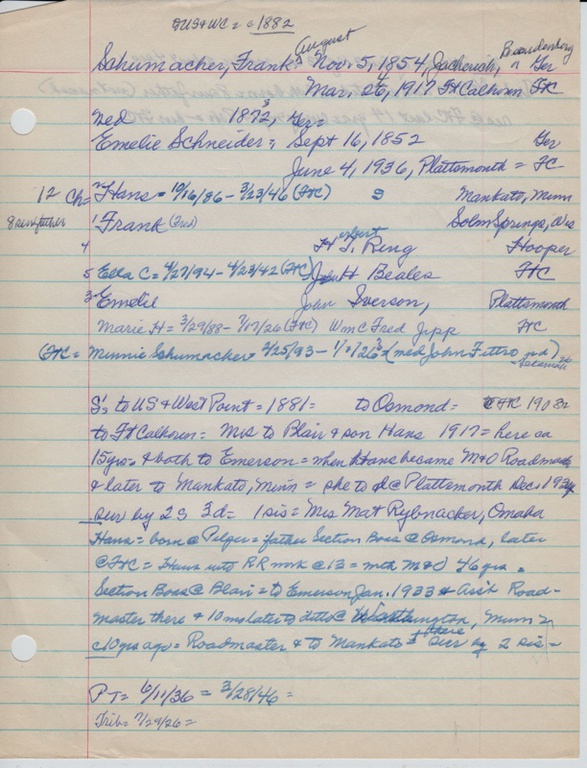 to US & WC = c 1882
August Brandenburg
Schumacher, Frank = Nov. 5, 1854, in Ger
Mar. 26, 1917 Ft Calhoun FC
Wed 1873, Ger =
Emelie Schneider = Sept 16, 1852 Ger
June 4, 1936, Plattsmouth = FC
12 Ch = 2 Hans = 10/16/86 - 3/23/46 (FtC) S Mankato, Minn
8 surv father 1 Frank (Fred)
4 H T. Ring Hooper
5 Ella C = 4/27/94 - 4/23/42 (FtC) John H Beales FtC
3 Emelie John Iverson, Plattsmouth
Marie H = 3/29/88 - (FtC) Wm C Fred Jipp FtC
(FtC = Minnie Schumacher 2/25/93 - (med John Fittro)
S's to US & West Point = 1881 = to Osmond = FtC 1903
to Ft Calhoun = Mrs to Blair & son Hans 1917 = here ca
15 yrs & both to Emerson = when Hans became M&O Roadmaster
& later to Mankato, Minn = she to Plattsmouth Dec. 1934
sur by 2 S 3 d = 1 sis = Mrs Mat Rybnacker, Omaha
Hans = born @ Pilger = father Section Boss @ Osmond, later
@ FtC = Hans into RR work @ 13 = with M&O 46 yrs =
Section Boss @ Blair = to Emerson Jan. 1933 & Ass't Road-
master there & 10 mos later to ditto @ Worthington, Minn =
c10 yrs ago = Roadmaster & to Mankato & there Sur by 2 sis =
PT = 6/11/36 = 3/28/46 =
Trib = 7/29/26 =